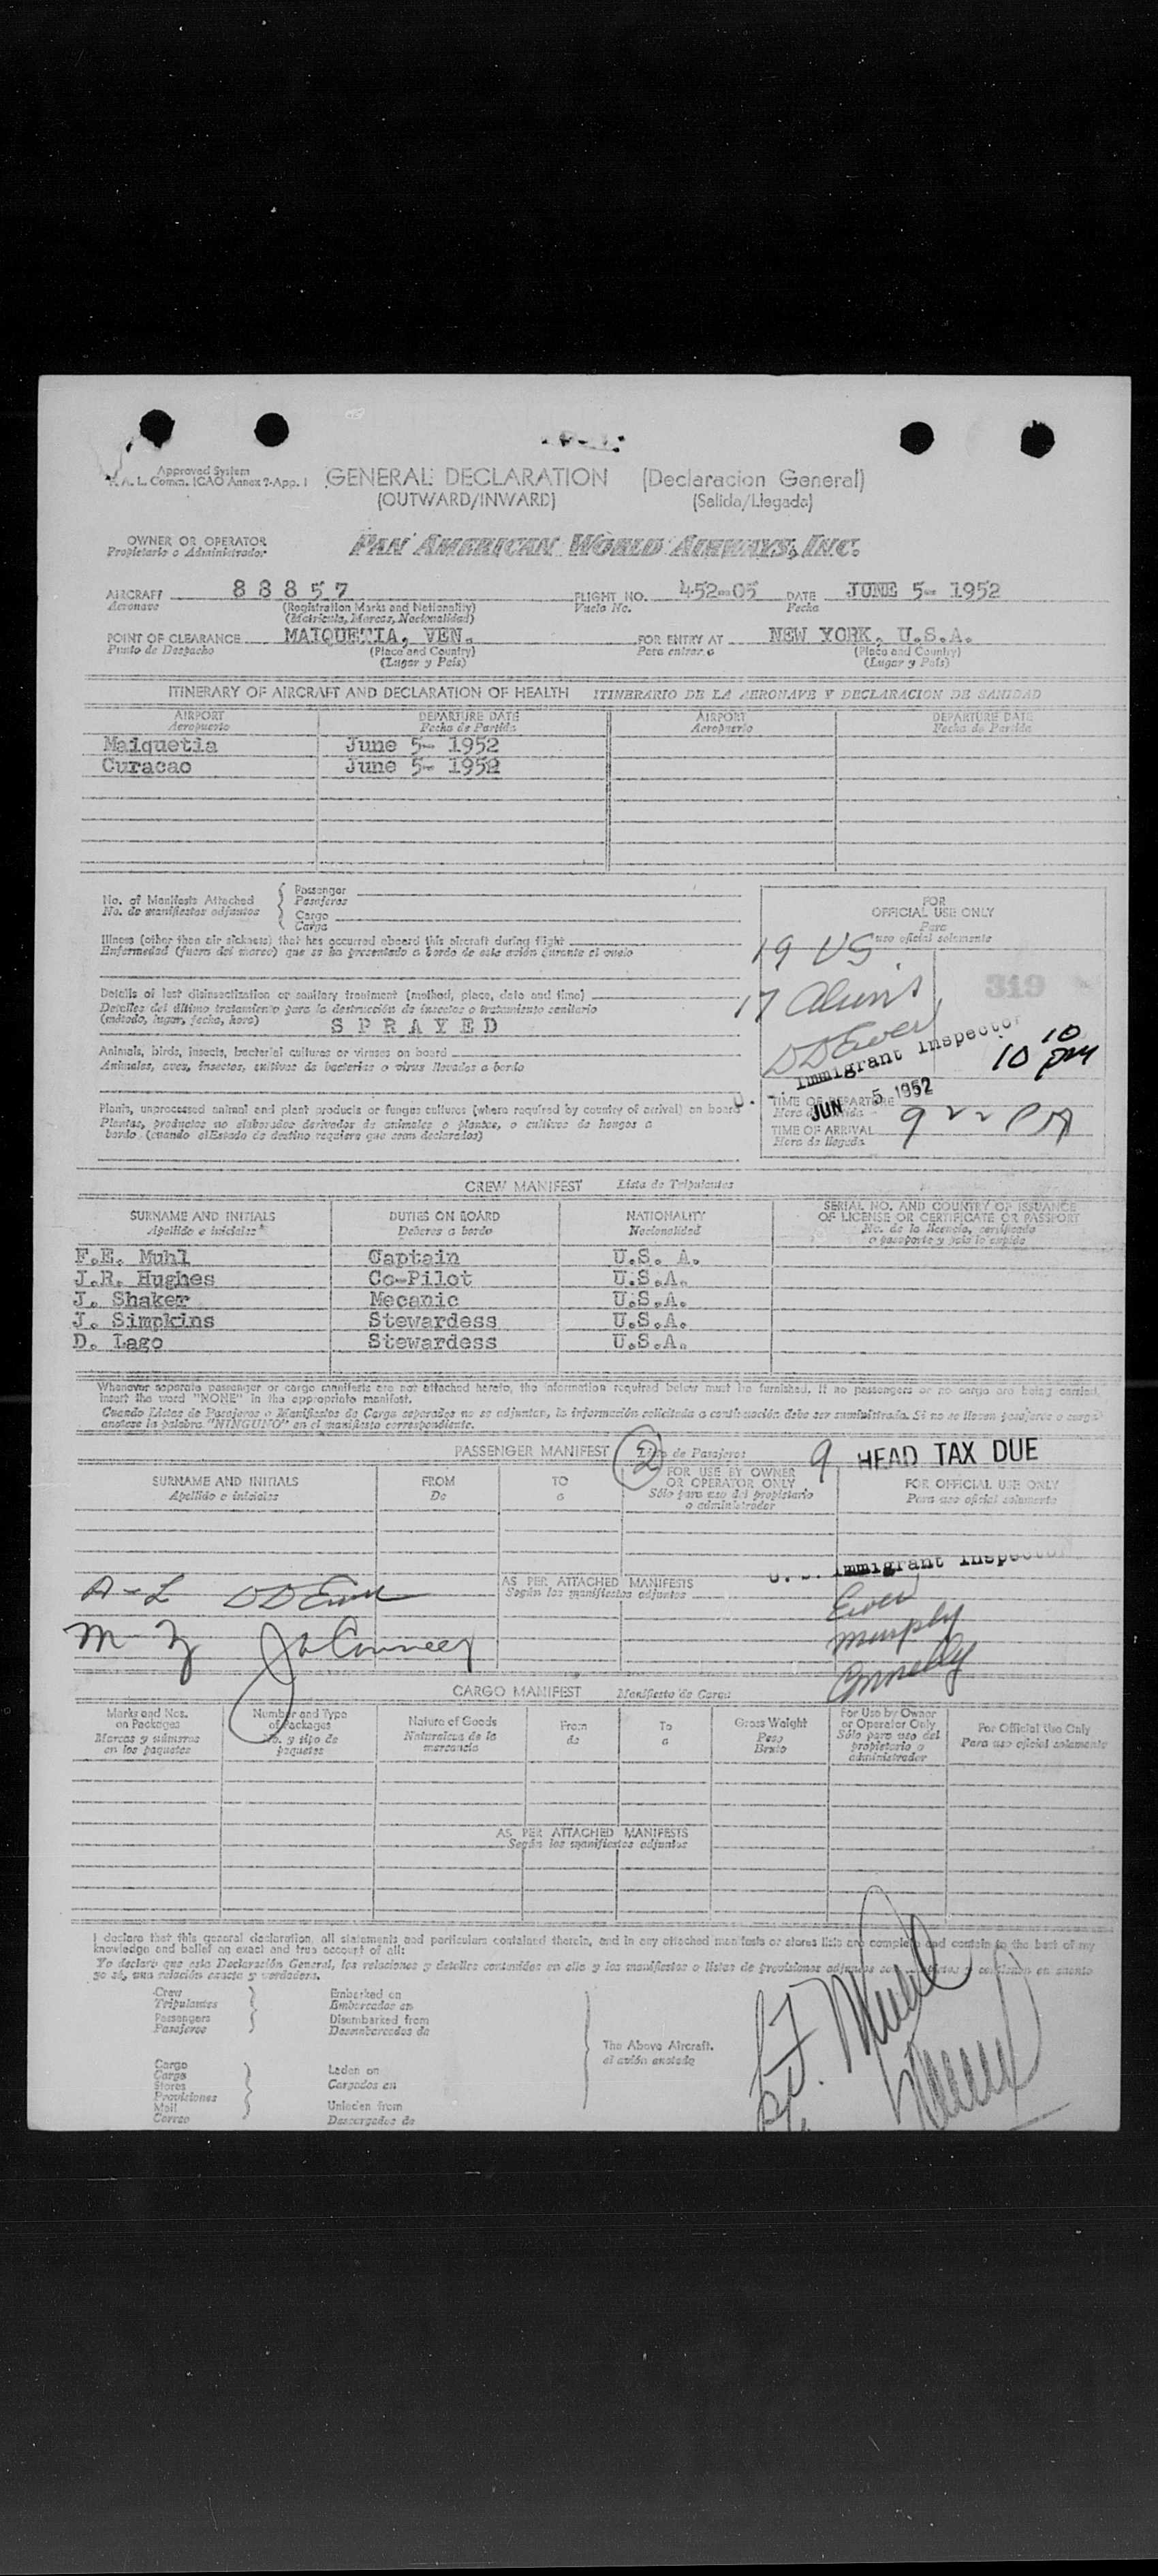 Approved System
F. A. L. Comm. ICAO Annex 9-App. 1
GENERAL DECLARATION (Declaracion General)
(OUTWARD/INWARD) (Salida/Llegada)
OWNER OR OPERATOR PAN AMERICAN WORLD AIRWAYS, INC.
Propietario o Administrador
AIRCRAFT 88857 FLIGHT NO. 452-05 DATE JUNE 5- 1952
Aeronave (Registration Marks and Nationality) Vuelo No. Fecha
(Matricula, Marcas, Nacionalidad)
POINT OF CLEARANCE MAIQUETIA, VEN. FOR ENTRY AT NEW YORK, U.S.A.
Punto de Despacho (Place and Country) Para entrar a (Place and Country)
(Lugar y País) (Lugar y País)
ITINERARY OF AIRCRAFT AND DECLARATION OF HEALTH ITINERARIO DE LA AERONAVE Y DECLARACION DE SANIDAD
AIRPORT DEPARTURE DATE AIRPORT DEPARTURE DATE
Aeropuerto Fecha de Partida Aeropuerto Fecha de Partida
Maiquetia June 5- 1952
Curacao June 5- 1952
No. of Manifests Attached Passenger
No. de manifiestos adjuntos Pasajeros
Cargo
Carga
FOR
OFFICIAL USE ONLY
Para
uso oficial solamente
Illness (other than air sickness) that has occurred aboard this aircraft during flight
Enfermedad (fuera del mareo) que se ha presentado a bordo de este avión durante el vuelo
19 US
319
Details of last disinsectization or sanitary treatment (method, place, date and time)
Detalles del último tratamiento para la destrucción de insectos o tratamiento sanitario
(método, lugar, fecha, hora) SPRAYED
17 Aliens
DDEwer
Immigrant Inspector
10 10 pm
Animals, birds, insects, bacterial cultures or viruses on board
Animales, aves, insectos, cultivos de bacterias o virus llevados a bordo
JUN 5 1952
Plants, unprocessed animal and plant products or fungus cultures (where required by country of arrival) on board
Plantas, productos no elaborados derivados de animales o plantas, o cultivos de hongos a
bordo (cuando el Estado de destino requiera que sean declarados)
TIME OF DEPARTURE
Hora de Salida
TIME OF ARRIVAL 9 22 PM
Hora de llegada
CREW MANIFEST Lista de Tripulantes
SURNAME AND INITIALS DUTIES ON BOARD NATIONALITY SERIAL NO. AND COUNTRY OF ISSUANCE OF LICENSE OR CERTIFICATE OR PASSPORT
Apellido e iniciales Deberes a bordo Nacionalidad No. de la licencia, certificado o pasaporte y país lo expide
F.E. Muhl Captain U.S. A.
J.R. Hughes Co-Pilot U.S.A.
J. Shaker Mecanic U.S.A.
J. Simpkins Stewardess U.S.A.
D. Lago Stewardess U.S.A.
Whenever separate passenger or cargo manifests are not attached hereto, the information required below must be furnished. If no passengers or no cargo are being carried,
insert the word "NONE" in the appropriate manifest.
Cuando Listas de Pasajeros o Manifiestos de Carga separados no se adjuntan, la información solicitada a continuación debe ser suministrada. Si no se llevan pasajeros o carga
anotese la palabra "NINGUNO" en el manifiesto correspondiente.
PASSENGER MANIFEST 2 Lista de Pasajeros 9 HEAD TAX DUE
SURNAME AND INITIALS FROM TO FOR USE BY OWNER OR OPERATOR ONLY FOR OFFICIAL USE ONLY
Apellido e iniciales De a Sólo para uso del propietario o administrador Para uso oficial solamente
U. S. Immigrant Inspector
A-L DDEwer AS PER ATTACHED MANIFESTS Ewer
Según los manifiestos adjuntos
M Z Murphy
Connelly
CARGO MANIFEST Manifiesto de Carga
Marks and Nos. on Packages Number and Type of Packages Nature of Goods From To Gross Weight For Use by Owner or Operator Only For Official Use Only
Marcas y números en los paquetes No. y tipo de paquetes Naturaleza de la mercancía de a Peso Bruto Sólo para uso del propietario o administrador Para uso oficial solamente
AS PER ATTACHED MANIFESTS
Según los manifiestos adjuntos
I declare that this general declaration, all statements and particulars contained therein, and in any attached manifests or stores lists are complete and contain to the best of my
knowledge and belief an exact and true account of all:
Yo declaro que esta Declaración General, las relaciones y detalles contenidos en ella y los manifiestos o listas de provisiones adjuntas son completos y contienen en cuanto
yo sé, una relación exacta y verdadera.
Crew Embarked on
Tripulantes Embarcados en
Passengers Disembarked from
Pasajeros Desembarcados de
The Above Aircraft.
el avión anotado
Cargo Laden on
Carga Cargados en
Stores
Provisiones
Mail Unladen from
Correo Descargados de